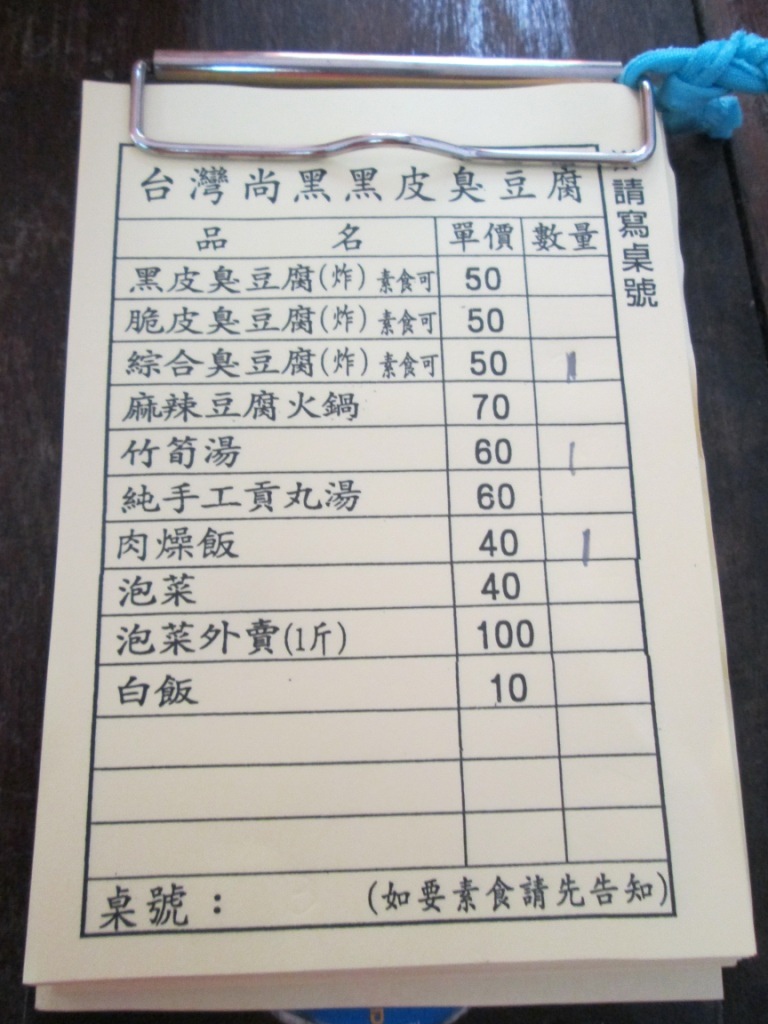 台灣尚黑黑皮臭豆腐
品名 單價 數量
黑皮臭豆腐(炸) 素食可 50
脆皮臭豆腐(炸) 素食可 50
綜合臭豆腐(炸) 素食可 50 1
麻辣豆腐火鍋 70
竹筍湯 60 1
純手工貢丸湯 60
肉燥飯 40 1
泡菜 40
泡菜外賣(1斤) 100
白飯 10
桌號： (如要素食請先告知)
※請寫桌號